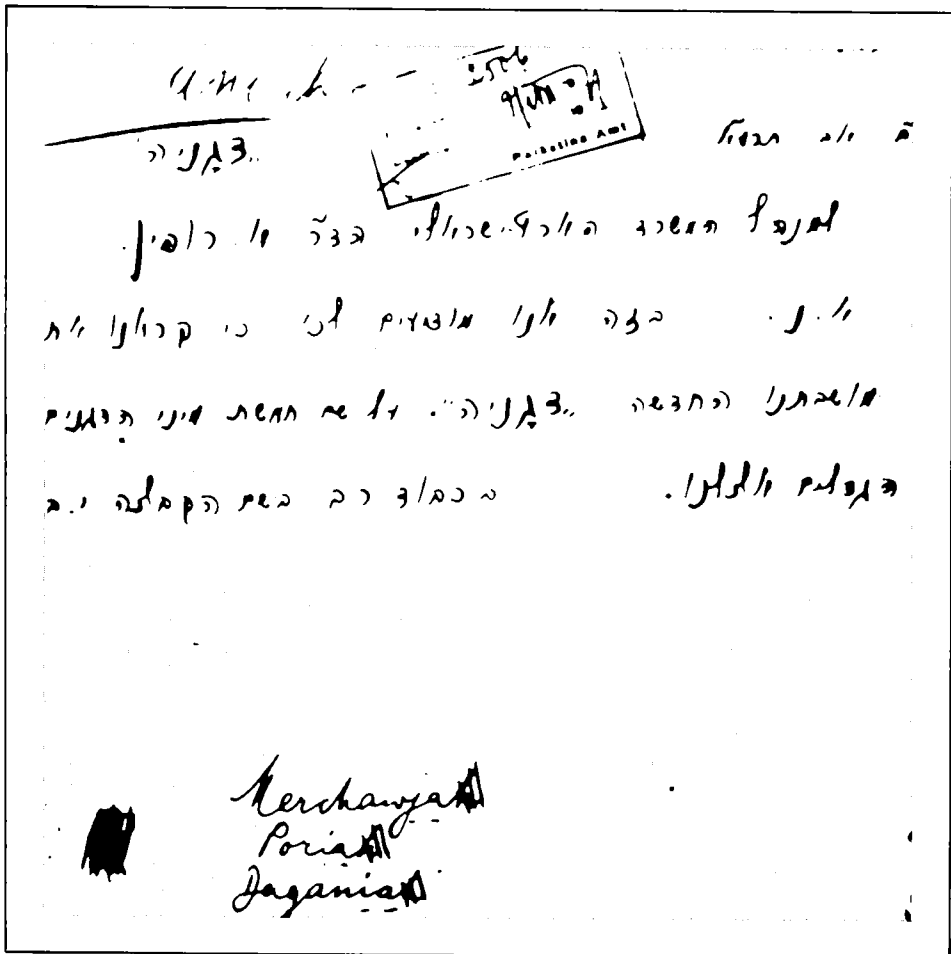 Palestina Amt
ב' אב תרע"א
„דגניה
למנהל המשרד הארץ-ישראלי בד"ר א. רופין.
א.נ. בזה אנו מודיעים לכי כי קראנו את
מושבתנו החדשה „דגניה". על שם חמשת מיני הדגנים
הגדלים אצלנו. בכבוד רב בשם הקבוצה י.ב
Merchawja
Poria
Dagania